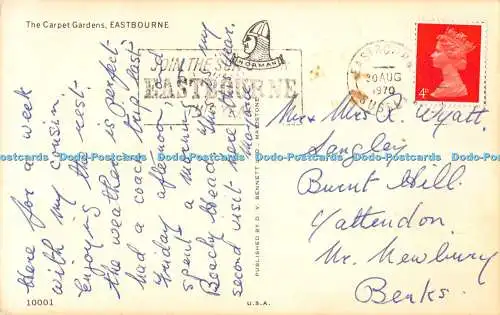 The Carpet Gardens, EASTBOURNE
JOIN THE
EASTBOURNE
NORMAN
EASTBOURNE
20 AUG
1970
SUSSEX
4D
Here for a week
with my cousin.
Enjoying the rest.
the weather is perfect
had a coach trip last
Friday afternoon, and
spent a morning up
Beachy Head. This is my
second visit here this year.
Marjorie
PUBLISHED BY D. V. BENNETT LTD., MAIDSTONE
Mr & Mrs R. Wyatt,
Langley
Burnt Hill.
Yattendon.
Nr. Newbury
Berks.
10001
U.S.A.
Dodo-Postcards Dodo-Postcards Dodo-Postcards Dodo-Postcards Dodo-Postcards Dodo-Postcards